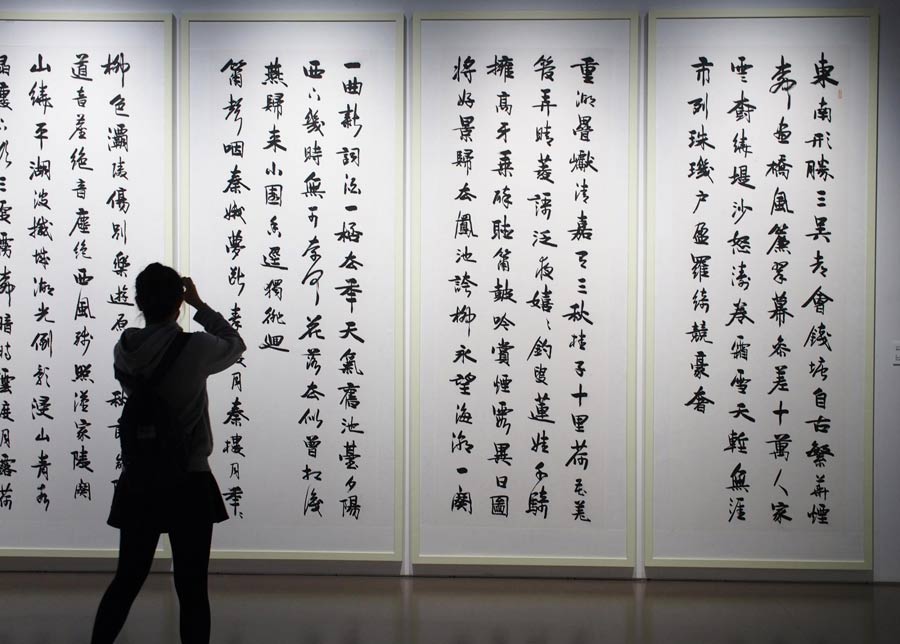 東南形勝三吳都會錢塘自古繁華煙
柳畫橋風簾翠幕參差十萬人家
雲樹繞堤沙怒濤卷霜雪天塹無涯
市列珠璣戶盈羅綺競豪奢
重湖疊巘清嘉有三秋桂子十里荷花羌
管弄晴菱謌泛夜嬉々釣叟蓮娃千騎
擁高牙乘醉聽簫鼓吟賞煙霞異日圖
將好景歸去鳳池誇柳永望海潮一闋
一曲新詞酒一杯去年天氣舊池臺夕陽
西下幾時無可奈何花落去似曾相識
燕歸來小園香徑獨徘徊
簫聲咽秦娥夢斷秦樓月秦樓月年々
柳色灞陵傷別樂遊原秋節
道音塵絕音塵絕西風殘照漢家陵闕
山繞平湖波撼城湖光倒影浸山青水
晶樓下欲三更霧柳暗時雲度月露荷